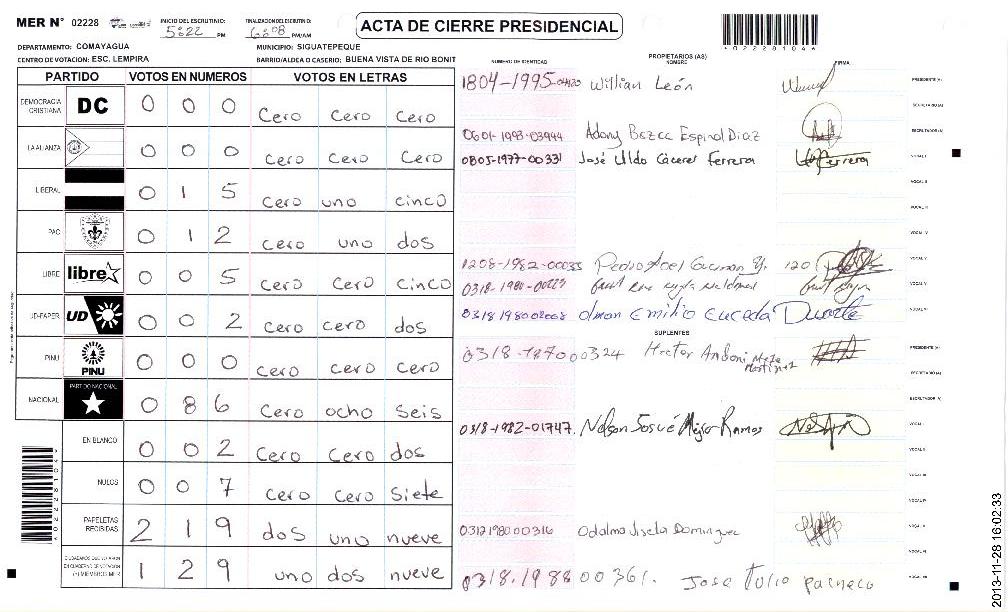 MER N° 02228
INICIO DEL ESCRUTINIO: 5:22 PM
FINALIZACION DEL ESCRUTINIO: 6:08 PM/AM
ACTA DE CIERRE PRESIDENCIAL
DEPARTAMENTO: COMAYAGUA
MUNICIPIO: SIGUATEPEQUE
CENTRO DE VOTACION: ESC. LEMPIRA
BARRIO/ALDEA O CASERIO: BUENA VISTA DE RIO BONIT
PARTIDO VOTOS EN NUMEROS VOTOS EN LETRAS
DEMOCRACIA CRISTIANA DC 0 0 0 Cero Cero Cero
LA ALIANZA 0 0 0 Cero Cero Cero
LIBERAL 0 1 5 Cero uno cinco
PAC 0 1 2 Cero uno dos
LIBRE libre 0 0 5 Cero Cero cinco
UD-FAPER UD 0 0 2 Cero cero dos
PINU PINU 0 0 0 Cero cero cero
NACIONAL PARTIDO NACIONAL 0 8 6 Cero ocho seis
EN BLANCO 0 0 2 Cero Cero dos
NULOS 0 0 7 Cero Cero siete
PAPELETAS RECIBIDAS 2 1 9 dos uno nueve
CIUDADANOS QUE VOTARON EN CUADERNO DE VOTACION (+) MIEMBROS MER 1 2 9 uno dos nueve
NUMERO DE IDENTIDAD
PROPIETARIOS (AS)
NOMBRE
FIRMA
1804-1995-04120 Willian León
0601-1993-03944 Adony Bezae Espinal Diaz
0805-1977-00331 José Ildo Cáceres Ferrera
1208-1982-00035 Pedro Joel Guzman Y.
0318-1980-00223
0318198002008 Olman Emilio Euceda Duarte
SUPLENTES
0318-1870000324 Hector Andoni Meza Martinez
0318-1982-01747. Nelson Josué Mejia Ramos
0312198000316 Odalma Jisela Dominguez
0318.1988 00361. Jose Tulio pacheco
PRESIDENTE (A)
SECRETARIO (A)
ESCRUTADOR (A)
VOCAL I
VOCAL II
PRESIDENTE (A)
SECRETARIO (A)
ESCRUTADOR (A)
VOCAL I
VOCAL II
2013-11-28 16:02:33